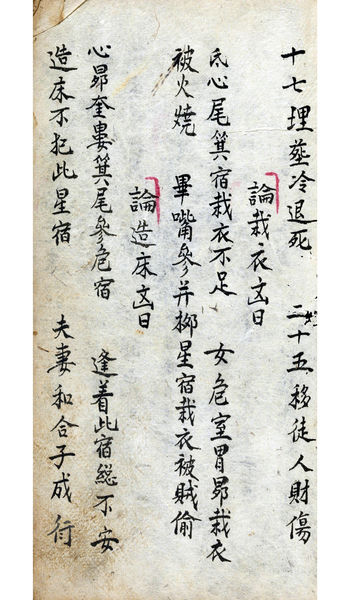 十七埋葬冷退死 二十五移徒人財傷
論裁衣凶日
氐心尾箕宿裁衣不足 女危室胃昴裁衣
被火燒 畢嘴參井柳星宿裁衣被賊偷
論造床凶日
心昴奎婁箕尾參危宿 逢着此宿総不安
造床不犯此星宿 夫妻和合子成行